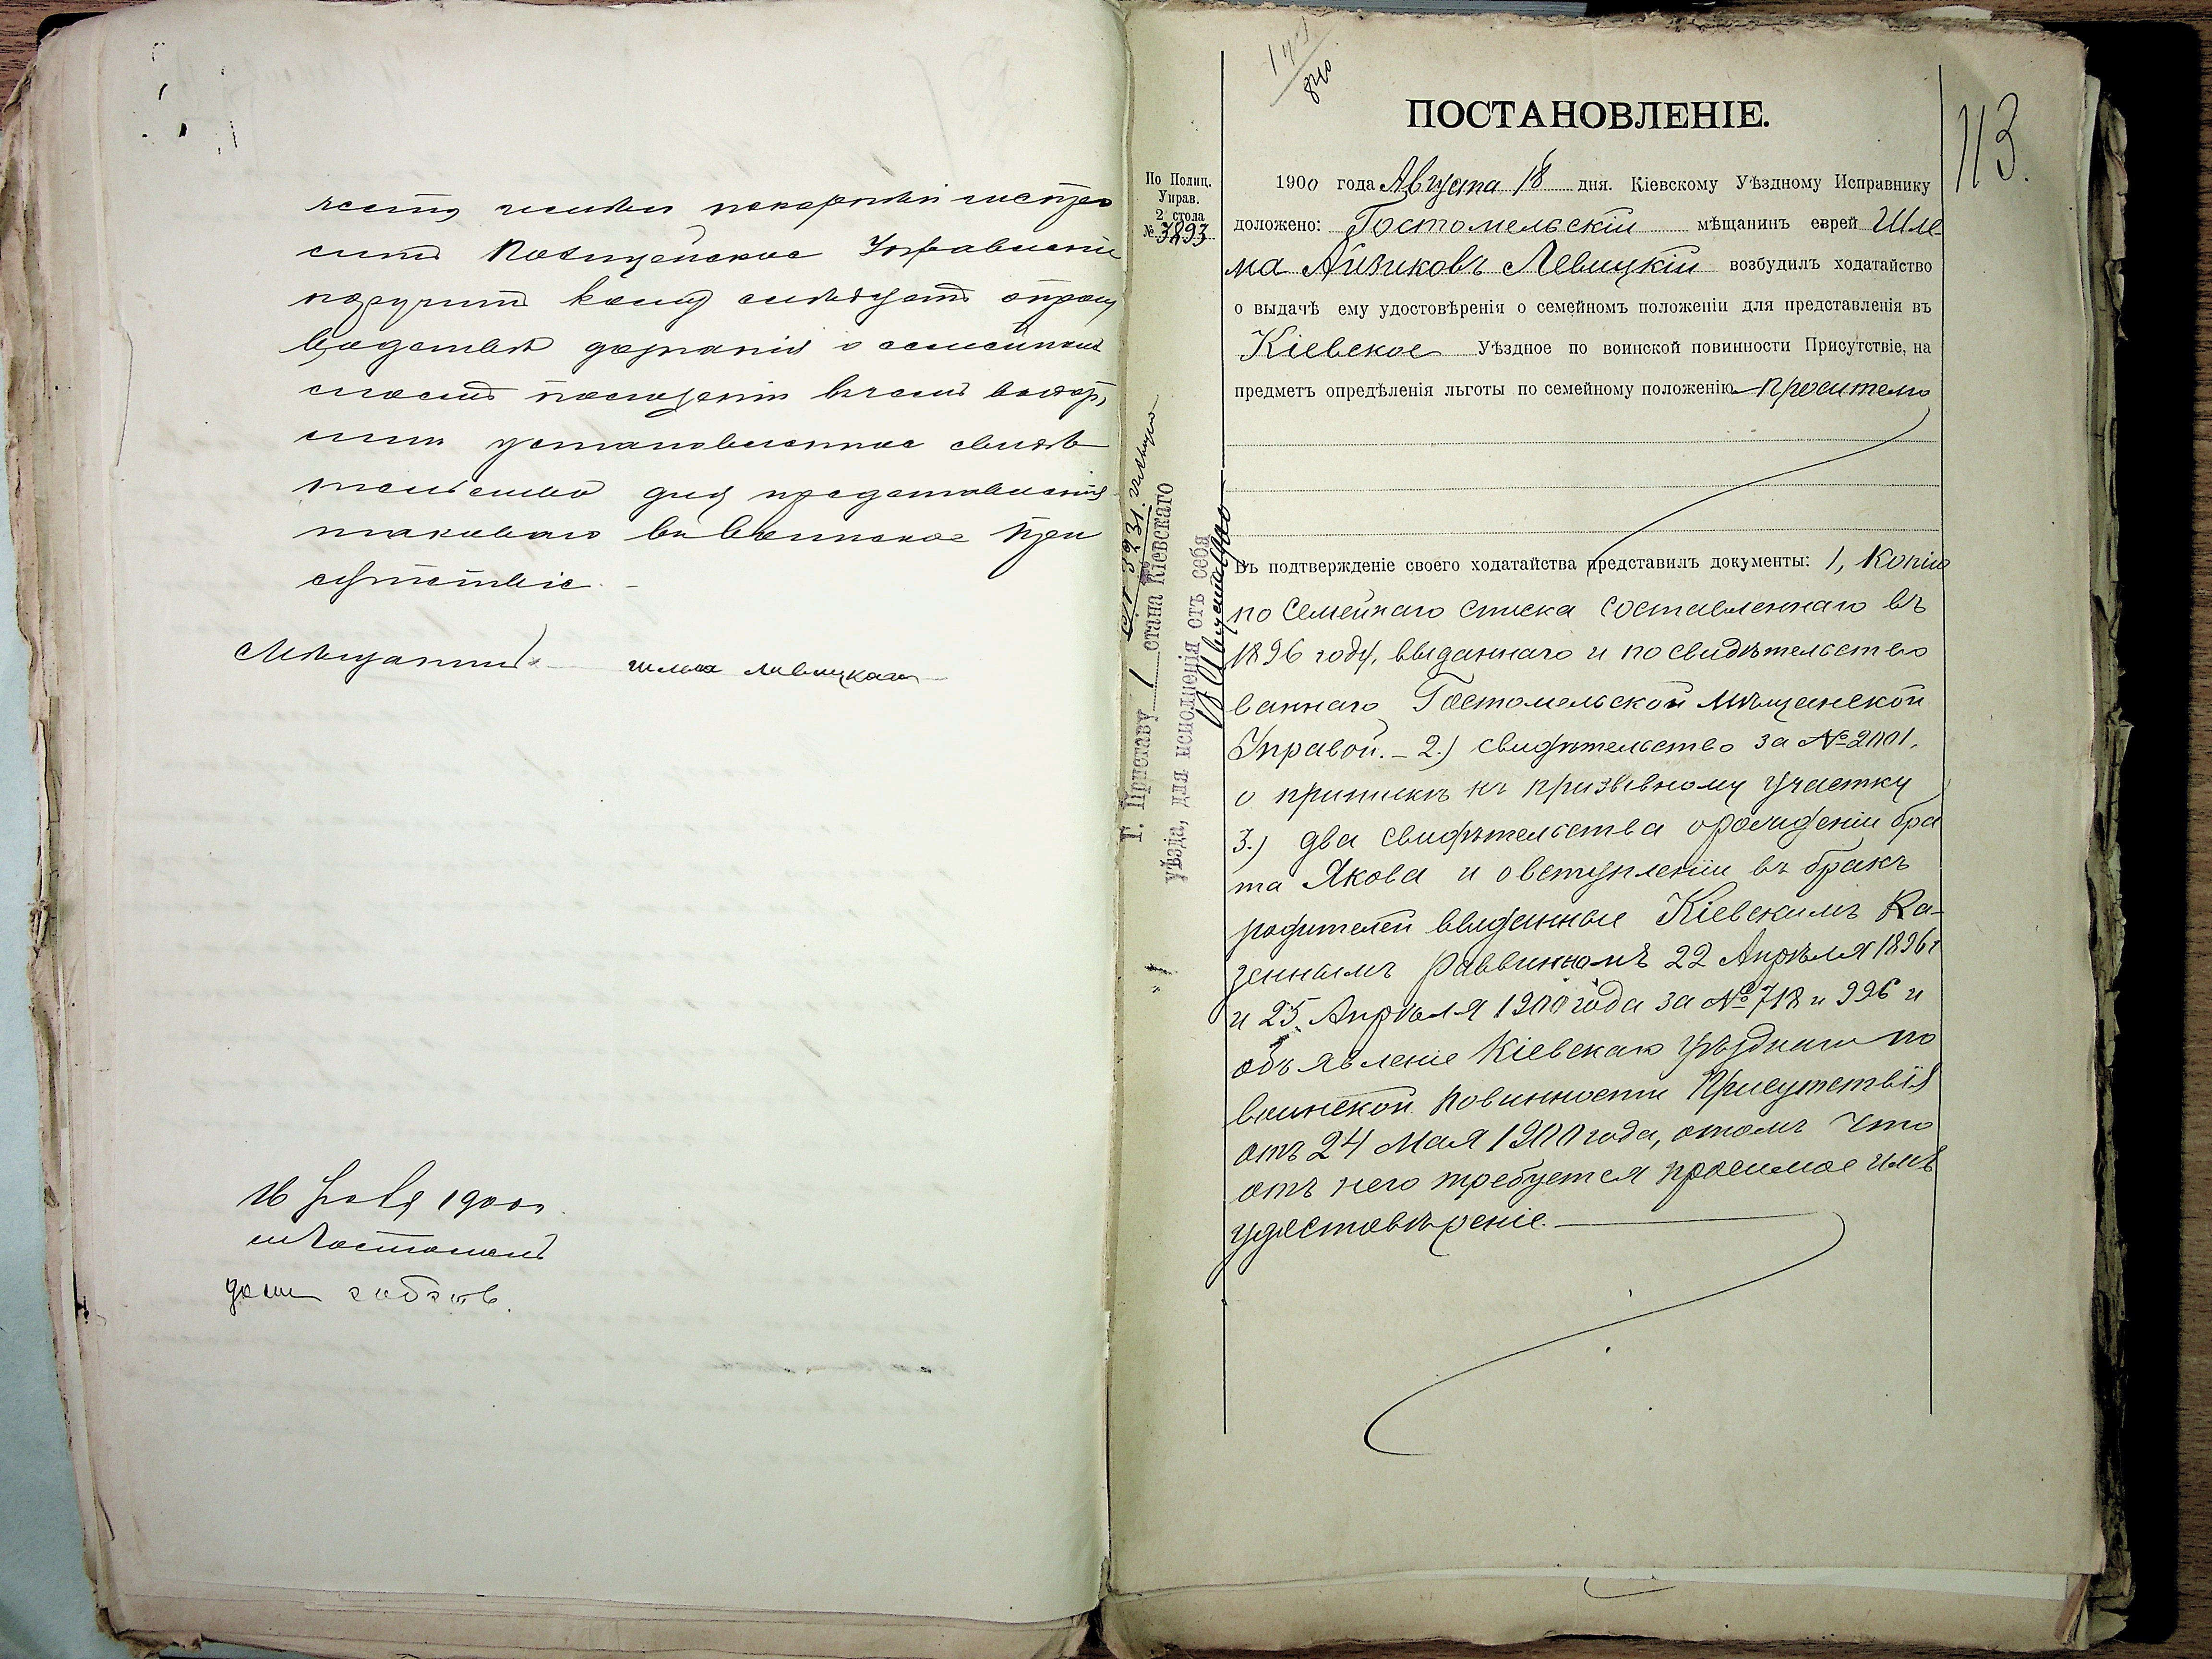 честь имѣю покорнѣйше про
сить Полицейское Управленіе
поручить кому слѣдуетъ
дознаніе о семейномъ
моемъ положеніи
установленное свидѣ
тельство для представленія
таковаго въ Воинское При
сутствіе. –
Мѣщанинъ шлема Левицкій
1900
г. Гостомель
ПОСТАНОВЛЕНІЕ.
113.
По Полиц.
Управ.
2 стола
№ 3893
1900 года Августа 18 дня. Кіевскому Уѣздному Исправнику
доложено: Гостомельскій мѣщанинъ еврей Шле-
ма Айзиковъ Левицкій возбудилъ ходатайство
о выдачѣ ему удостовѣренія о семейномъ положеніи для представленія въ
Кіевское Уѣздное по воинской повинности Присутствіе, на
предметъ опредѣленія льготы по семейному положенію проситель
Въ подтвержденіе своего ходатайства представилъ документы: 1, Копію
посемейнаго списка составленнаго въ
1896 году, выданнаго и посвидѣтельство
ваннаго Гостомельской Мѣщанской
Управой. – 2.) свидѣтельство за № 2001,
о припискѣ къ призывному участку
3.) два свидѣтельства о рожденіи бра
та Якова и о вступленіи въ бракъ
родителей выданные Кіевскимъ Ка-
зеннымъ раввиномъ 22 Апрѣля 1896 г
и 25 Апрѣля 1900 года за № 718 и 996 и
объявленіе Кіевскаго Уѣзднаго по
воинской повинности Присутствія
отъ 24 Мая 1900 года, о томъ что
отъ него требуется просимое имъ
удостовѣреніе. –
Г. Приставу 1 стана Кіевскаго
уѣзда, для исполненія отъ себя